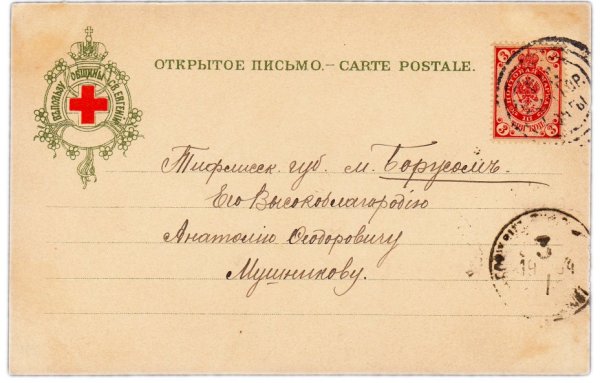 ВЪ ПОЛЬЗУ ОБЩИНЫ СВ. ЕВГЕНІИ
ОТКРЫТОЕ ПИСЬМО.— CARTE POSTALE.
3 3
3 3
Тифлисск. губ. м. Боржомъ
Его Высокоблагородію
Анатолію Ѳеодоровичу
Мушникову.
3